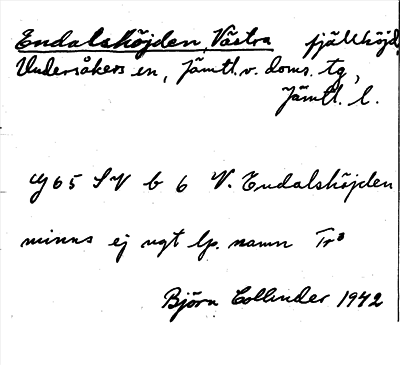 Endalshöjden, Västra fjällhöjd
Undersåkers sn, Jämtl. v. doms. tg,
Jämtl. l.
y 65 SV b 6 V. Endalshöjden
minns ej ngt lp. namn Tr³
Björn Collinder 1942